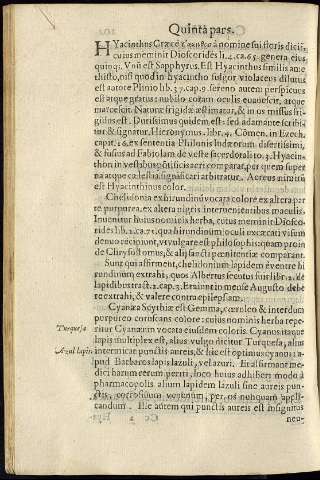 Quinta pars.
HYacinthus Græcè à nomine sui floris dicit.
cuius meminit Dioscorides li.4.ca.65. genera eius
quinq;. Vnũ est Sapphyrus. Est Hyacinthus similis ame
thisto, nisi quod in hyacintho fulgor violaceus dilutus
est autore Plinio lib.37.cap.9. sereno autem perspicuus
est atque gratus: nubilo coram oculis euanescit, atque
marcescit. Naturæ frigidæ æstimatur, & in os missus fri-
gidus est. Durissimus quidem est: sed adamante scribi-
tur & signatur. Hieronymus. libr.4. Cõmen. in Ezech.
capit.16. ex sententia Philonis Iudæorum disertissimi,
& fusius ad Fabiolam de veste sacerdotali to.3. Hyacin-
thon in vestib. põtificis aeri comparat, per quem super
na atque cælestia significari arbitratur. Aereus nimirũ
est Hyacinthinus color.
Chelidonia ex hirundinũ voca colore ex altera par
te purpurea, ex altera nigris interuenientibus maculis.
Inuenitur huius nominis herba, cuius meminit Diosco-
rides lib.2.ca.72. qua hirundinum oculi excæcati visum
denuo recipiunt, vt vulgare est philosophis: quam proin
de Chrysostomus, & alij sancti pœnitentiæ comparant.
Sunt qui affirment, chelidonium lapidem è ventre hi
rundinum extrahi, quos Albertus secutus fuit libr.2. de
lapidib. tract.2.cap.3. Eruuntur mense Augusto debe
re extrahi, & valere contra epilepsiam.
Cyanæa Scythiæ est Gemma, cœruleo & interdum
porpureo corufcans colore: cuius nominis herba repe-
ritur Cyaneum vocata eiusdem coloris. Cyanus itaque
Turquesa lapis multiplex est, alius vulgo dicitur Turquesa, alius
Azul lapis intermicat punctis aureis, & hic est optimus cyanus: a-
pud Barbaros lapis lazuli, vel azuri. Et assirmant me-
dici harum rerum periti, loco huius adhiberi modo à
pharmacopolis alium lapidem lazuli sine aureis pun-
ctis, corrosiuum venenum, per os nunquam appli-
candum. Hic autem qui punctis aureis est insignitus
neu-